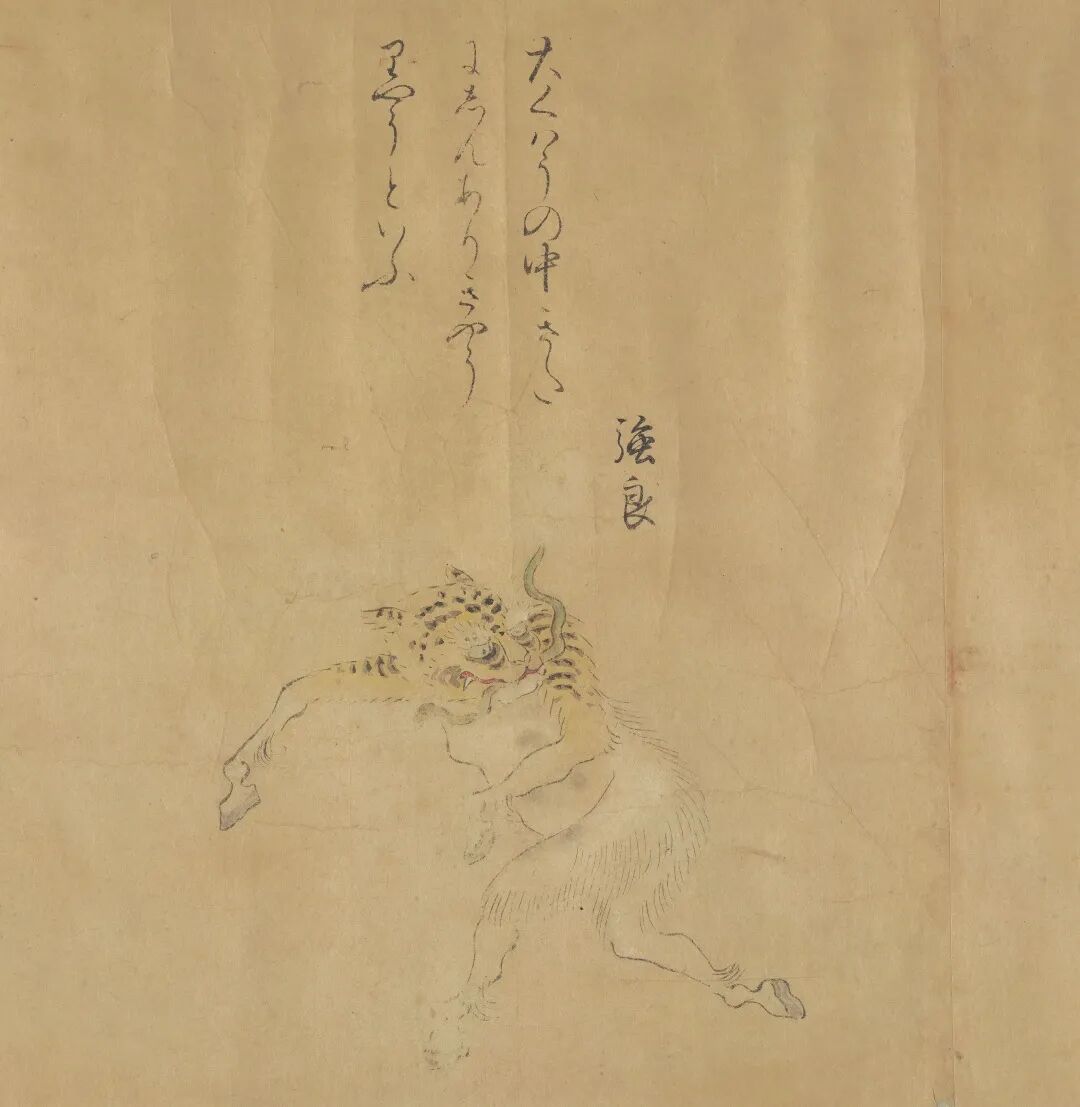 強良
大くハうの中きた
にしんありきやう
りやうといふ